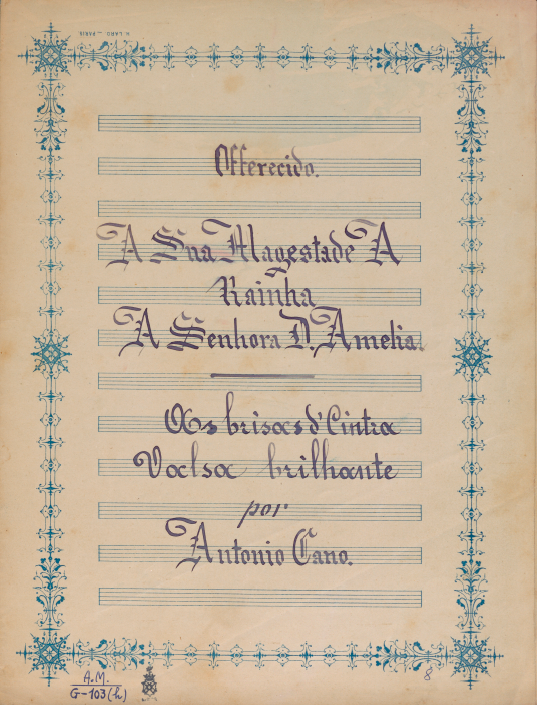 H. LARD — PARIS
Offerecido.
A Sua Magestade A
Rainha
A Senhora D. Amelia.
As brisas d'Cintra
Valsa brilhante
por
Antonio Cano.
A.M.
G-103(h)
8